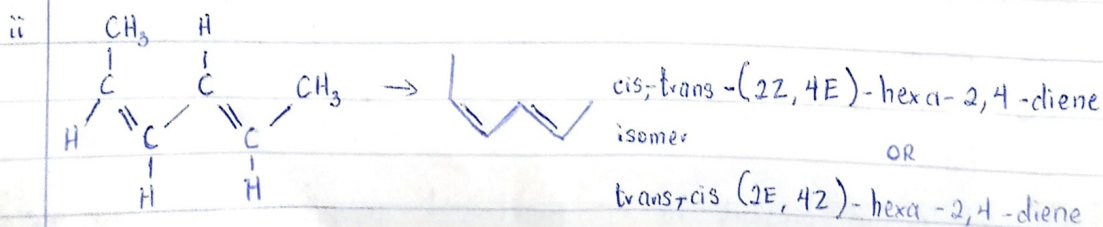 ii
CH₃ H
C C CH₃ → cis,-trans-(2Z, 4E)-hexa-2,4-diene
H C C isomer
OR
H H trans,-cis (2E, 4Z)-hexa-2,4-diene